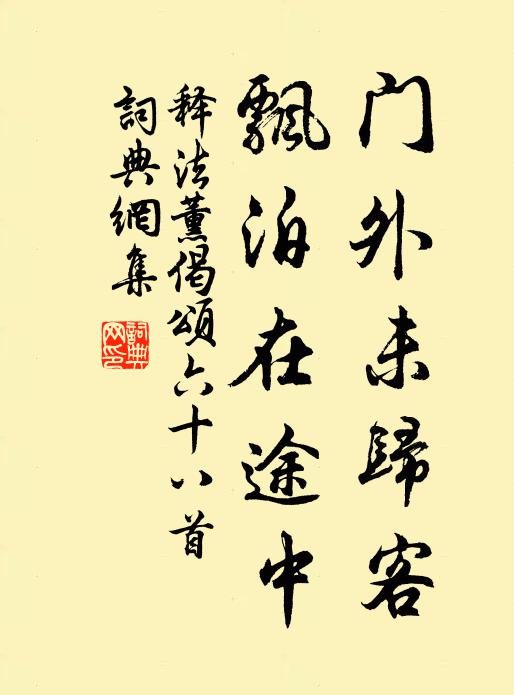 门外未歸客
飄泊在途中
释法薰偈頌六十八首
詞典網集
詞典网印